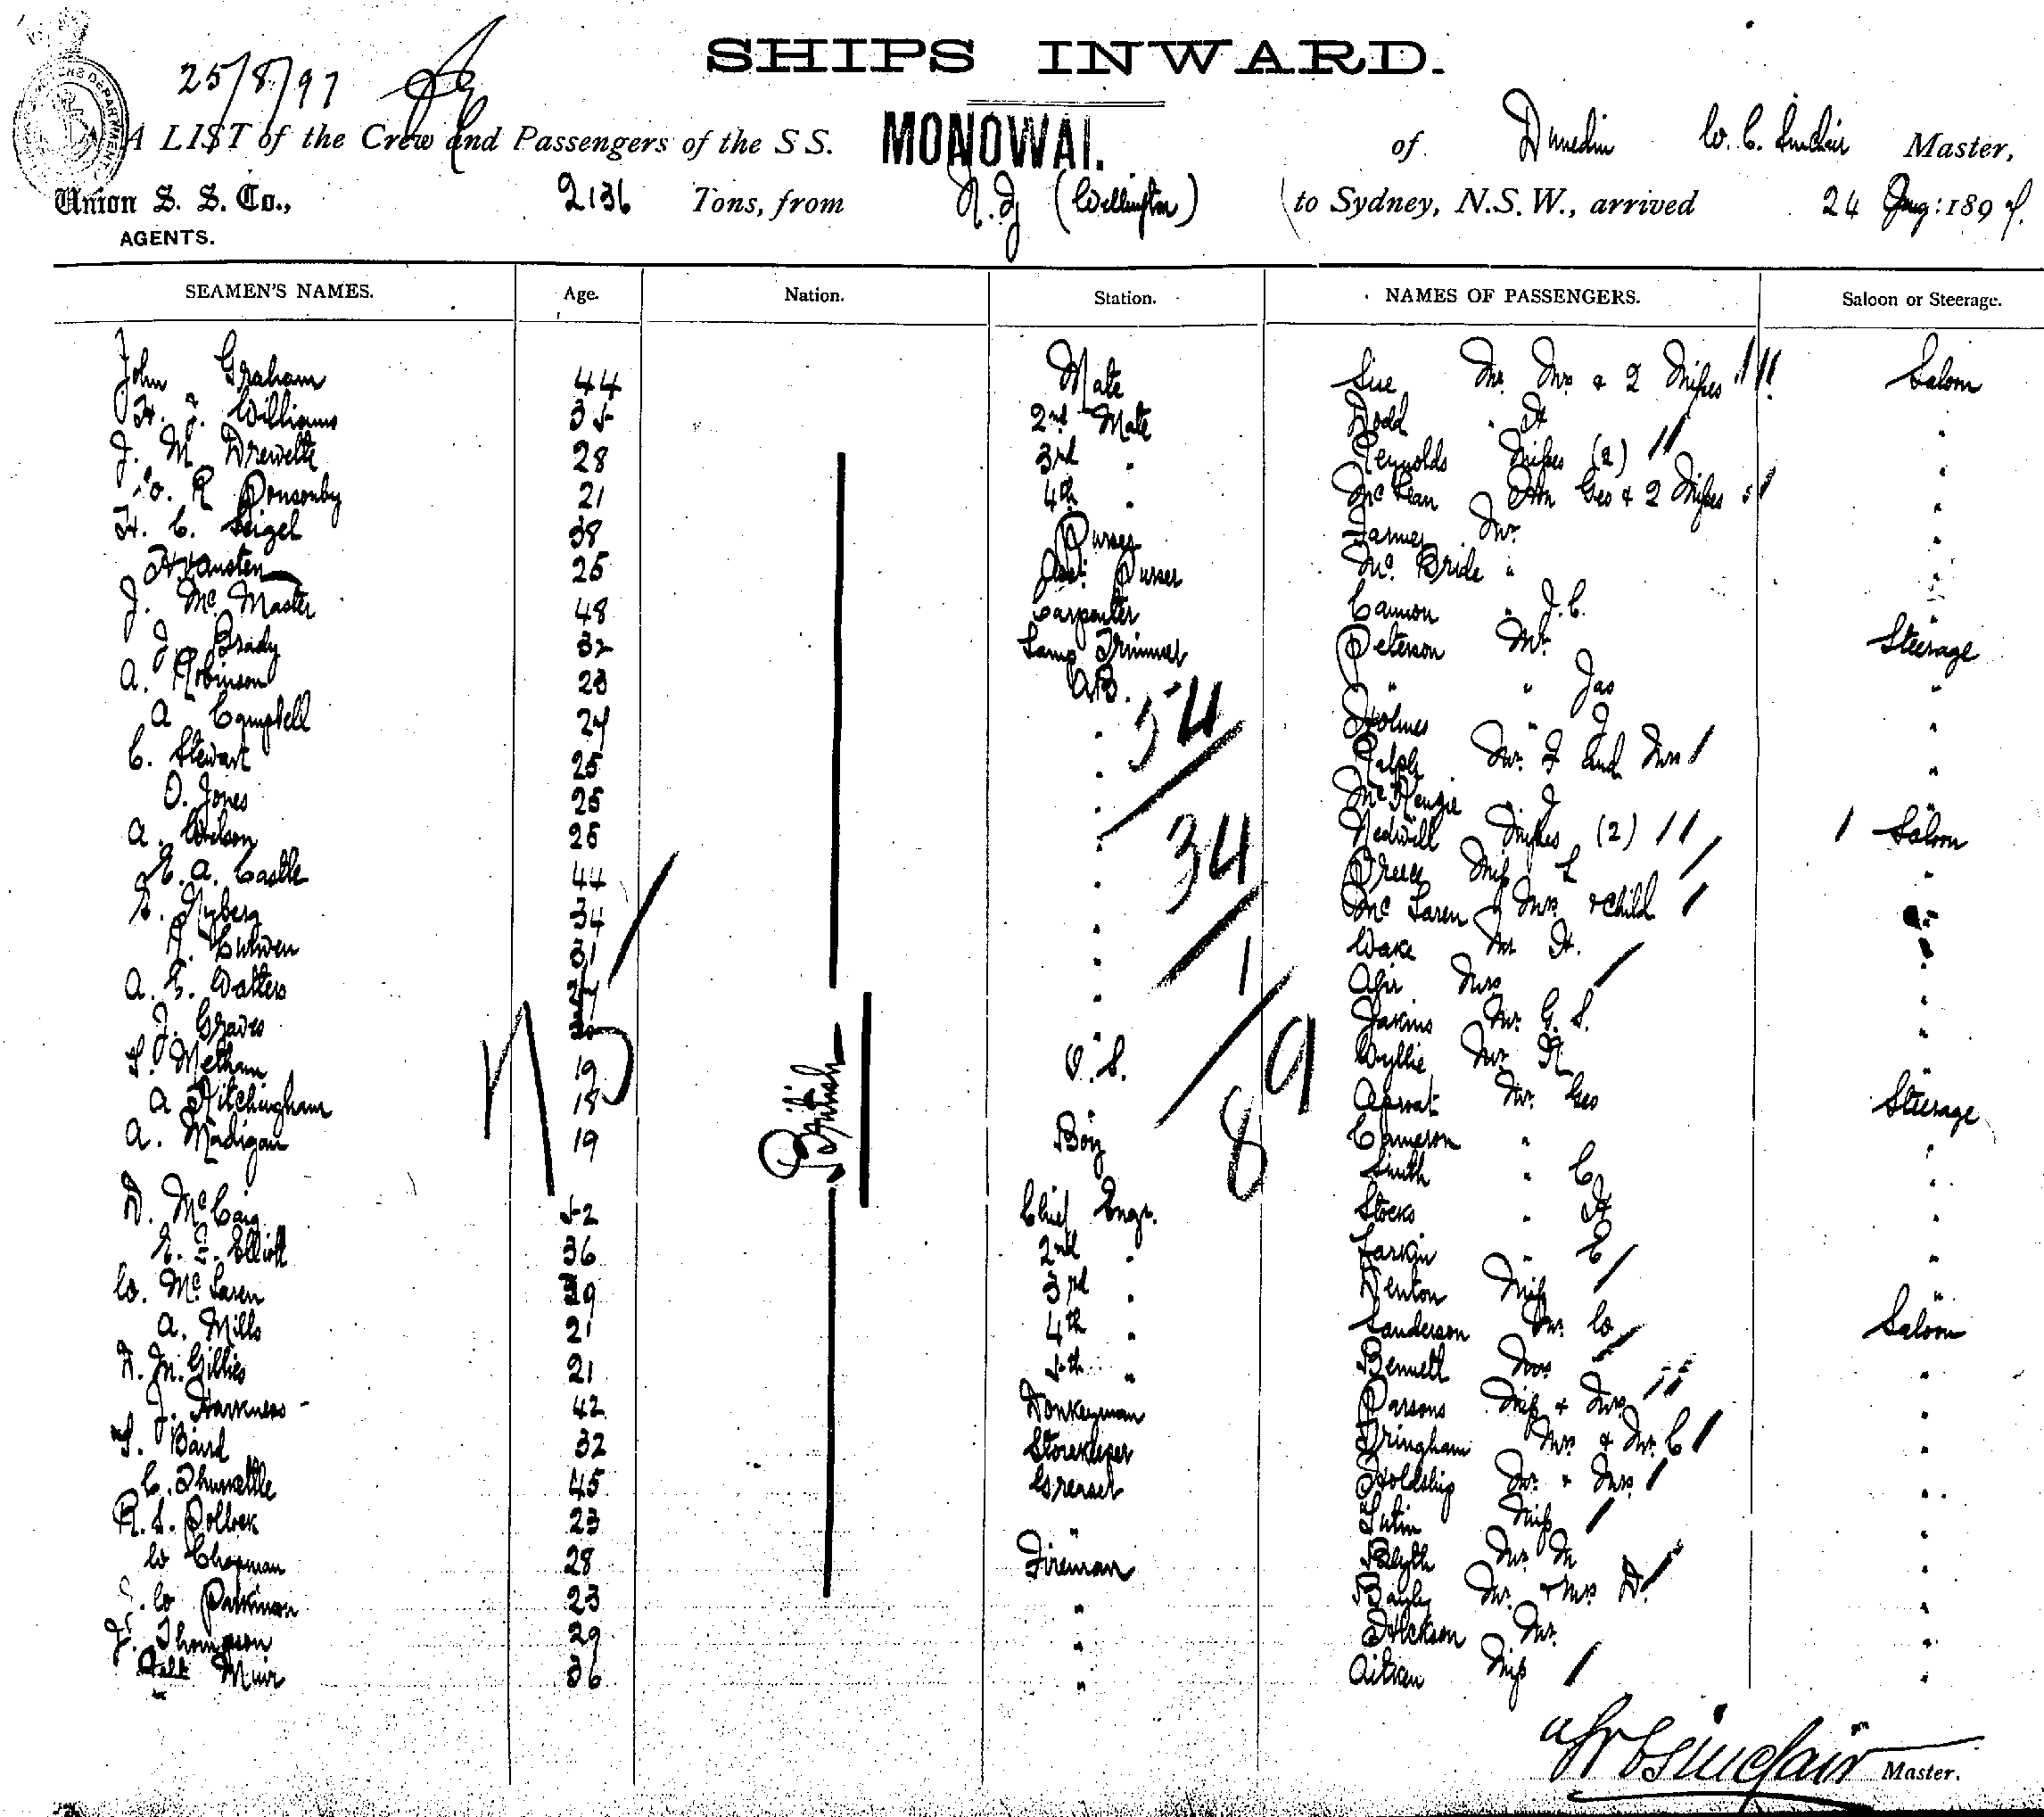 SHIPS INWARD.
25/8/97
A LIST of the Crew and Passengers of the S S. MONOWAI. of Dunedin W. C. Sinclair Master,
Union S. S. Co., 2136 Tons, from N. Z (Wellington) to Sydney, N.S.W., arrived 24 Aug: 1897.
AGENTS.
SEAMEN'S NAMES. Age. Nation. Station. NAMES OF PASSENGERS. Saloon or Steerage.
John Graham 44 Mate Sise Mr. Mrs & 2 Misses Saloon
H. Williams 35 2nd Mate Dodd " H "
J. M Drewette 28 3rd " Reynolds Misses (2) "
R Ponsonby 21 4th " McLean Geo & 2 Misses "
H. C. Seigel 38 Purser Farmer Mr. "
25 Asst. Purser Mc. Bride " "
J. Mc. Master 48 Carpenter Cannon " J. C. "
J. Brady 32 Lamp Trimmer Peterson Mr. Steerage
A. Robinson 23 A.B. " " Jas "
A Campbell 27 " Holmes " J "
C. Stewart 25 " Ralph Mr. F and Mrs "
O. Jones 25 " McKenzie " J "
A. Wilson 25 " Nedwill Misses (2) 1 Saloon
E. A. Castle 44 " Preece Miss L "
E. Nyberg 34 " Mc Laren Mrs. & Child "
R. Curwen 31 " Wake Mr H. "
A. E. Watters 27 " Mrs "
J. Graves " Jakins Mr. G. S. "
S. Metham 19 O. S. Wyllie Mr. R "
A Kitchingham 18 " Mr. Geo Steerage
A. Madigan 19 Boy Cameron " "
British
Smith " C "
D. McCaig 52 Chief Engr. Stocks " H "
E. F. Elliott 36 2nd " Larkin " E "
W. Mc. Laren 39 3rd " Denton Miss "
A. Mills 21 4th " Sanderson Mr. W Saloon
D. M. Gillies 21 5th " Bennett Mrs "
J. Harkness 42 Donkeyman Parsons Miss & Mrs "
S. Baird 32 Storekeeper Tringham Mrs. & Mr. C "
C. Thurkettle 45 Greaser Holdship Mr. & Mrs. "
R. S. Pollock 23 " Miss "
W Chapman 28 Fireman Blyth Mr. M "
W Parkinson 23 " Bayly Mr. & Mrs D. "
J. Thompson 29 " Dickson Mr. "
Muir 36 " Aitken Miss "
34
34
1
9
8
W C Sinclair Master.